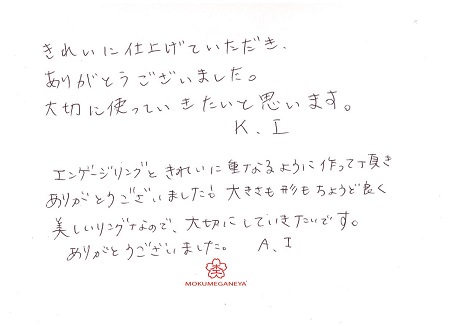 きれいに仕上げていただき、
ありがとうございました。
大切に使っていきたいと思います。
K.I
エンゲージリングときれいに重なるように作って頂き
ありがとうございました!大きさも形もちょうど良く
美しいリングなので、大切にしていきたいです。
ありがとうございました。 A.I
MOKUMEGANEYA